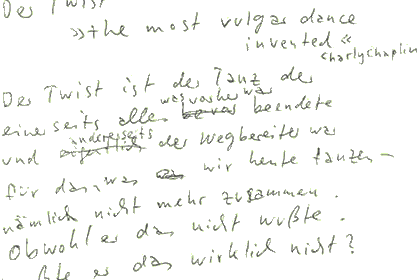 Der Twist
»the most vulgar dance
invented«
CharlyChaplin
Der Twist ist der Tanz der
was vorher war
einerseits alles bevor beendete
andererseits
und eigentlich der Wegbereiter war
für das, was wir heute tanzen –
nämlich nicht mehr zusammen.
Obwohl er das nicht wußte.
ßte er das wirklich nicht?